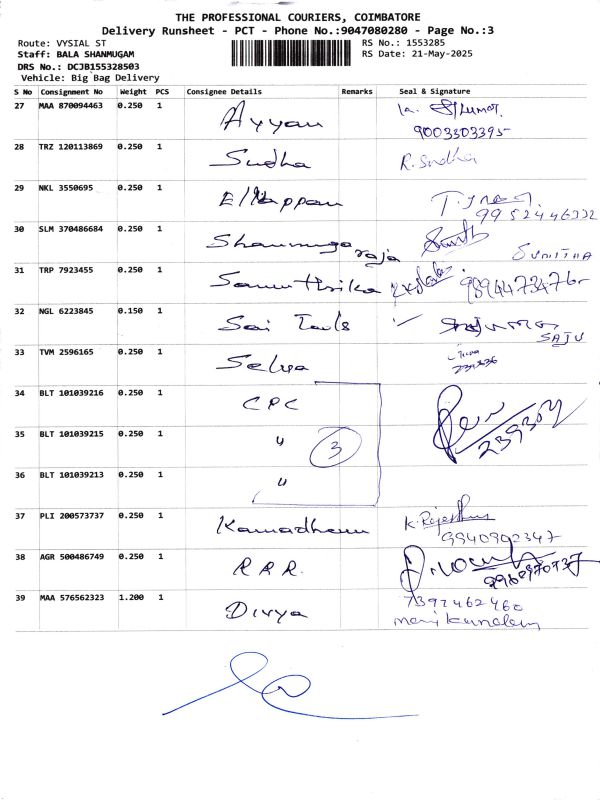 THE PROFESSIONAL COURIERS, COIMBATORE
Delivery Runsheet - PCT - Phone No.:9047080280 - Page No.:3
Route: VYSIAL ST
RS No.: 1553285
Staff: BALA SHANMUGAM
RS Date: 21-May-2025
DRS No.: DCJB155328503
Vehicle: Big Bag Delivery
S No Consignment No Weight PCS Consignee Details Remarks Seal & Signature
27 MAA 870094463 0.250 1 Ayyan
9003303395
28 TRZ 120113869 0.250 1 Sudha R. Sudha
29 NKL 3550695 0.250 1
9952446332
30 SLM 370486684 0.250 1 Shanmuga raja SUNITHA
31 TRP 7923455 0.250 1 Samuthrika 9894473476
32 NGL 6223845 0.150 1 Sai
SAJU
33 TVM 2596165 0.250 1 Selva
34 BLT 101039216 0.250 1 CPC
239304
35 BLT 101039215 0.250 1 " 3
36 BLT 101039213 0.250 1 "
37 PLI 200573737 0.250 1 Kamadhenu
9940902347
38 AGR 500486749 0.250 1 R R R.
39 MAA 576562323 1.200 1 Divya 7397462460